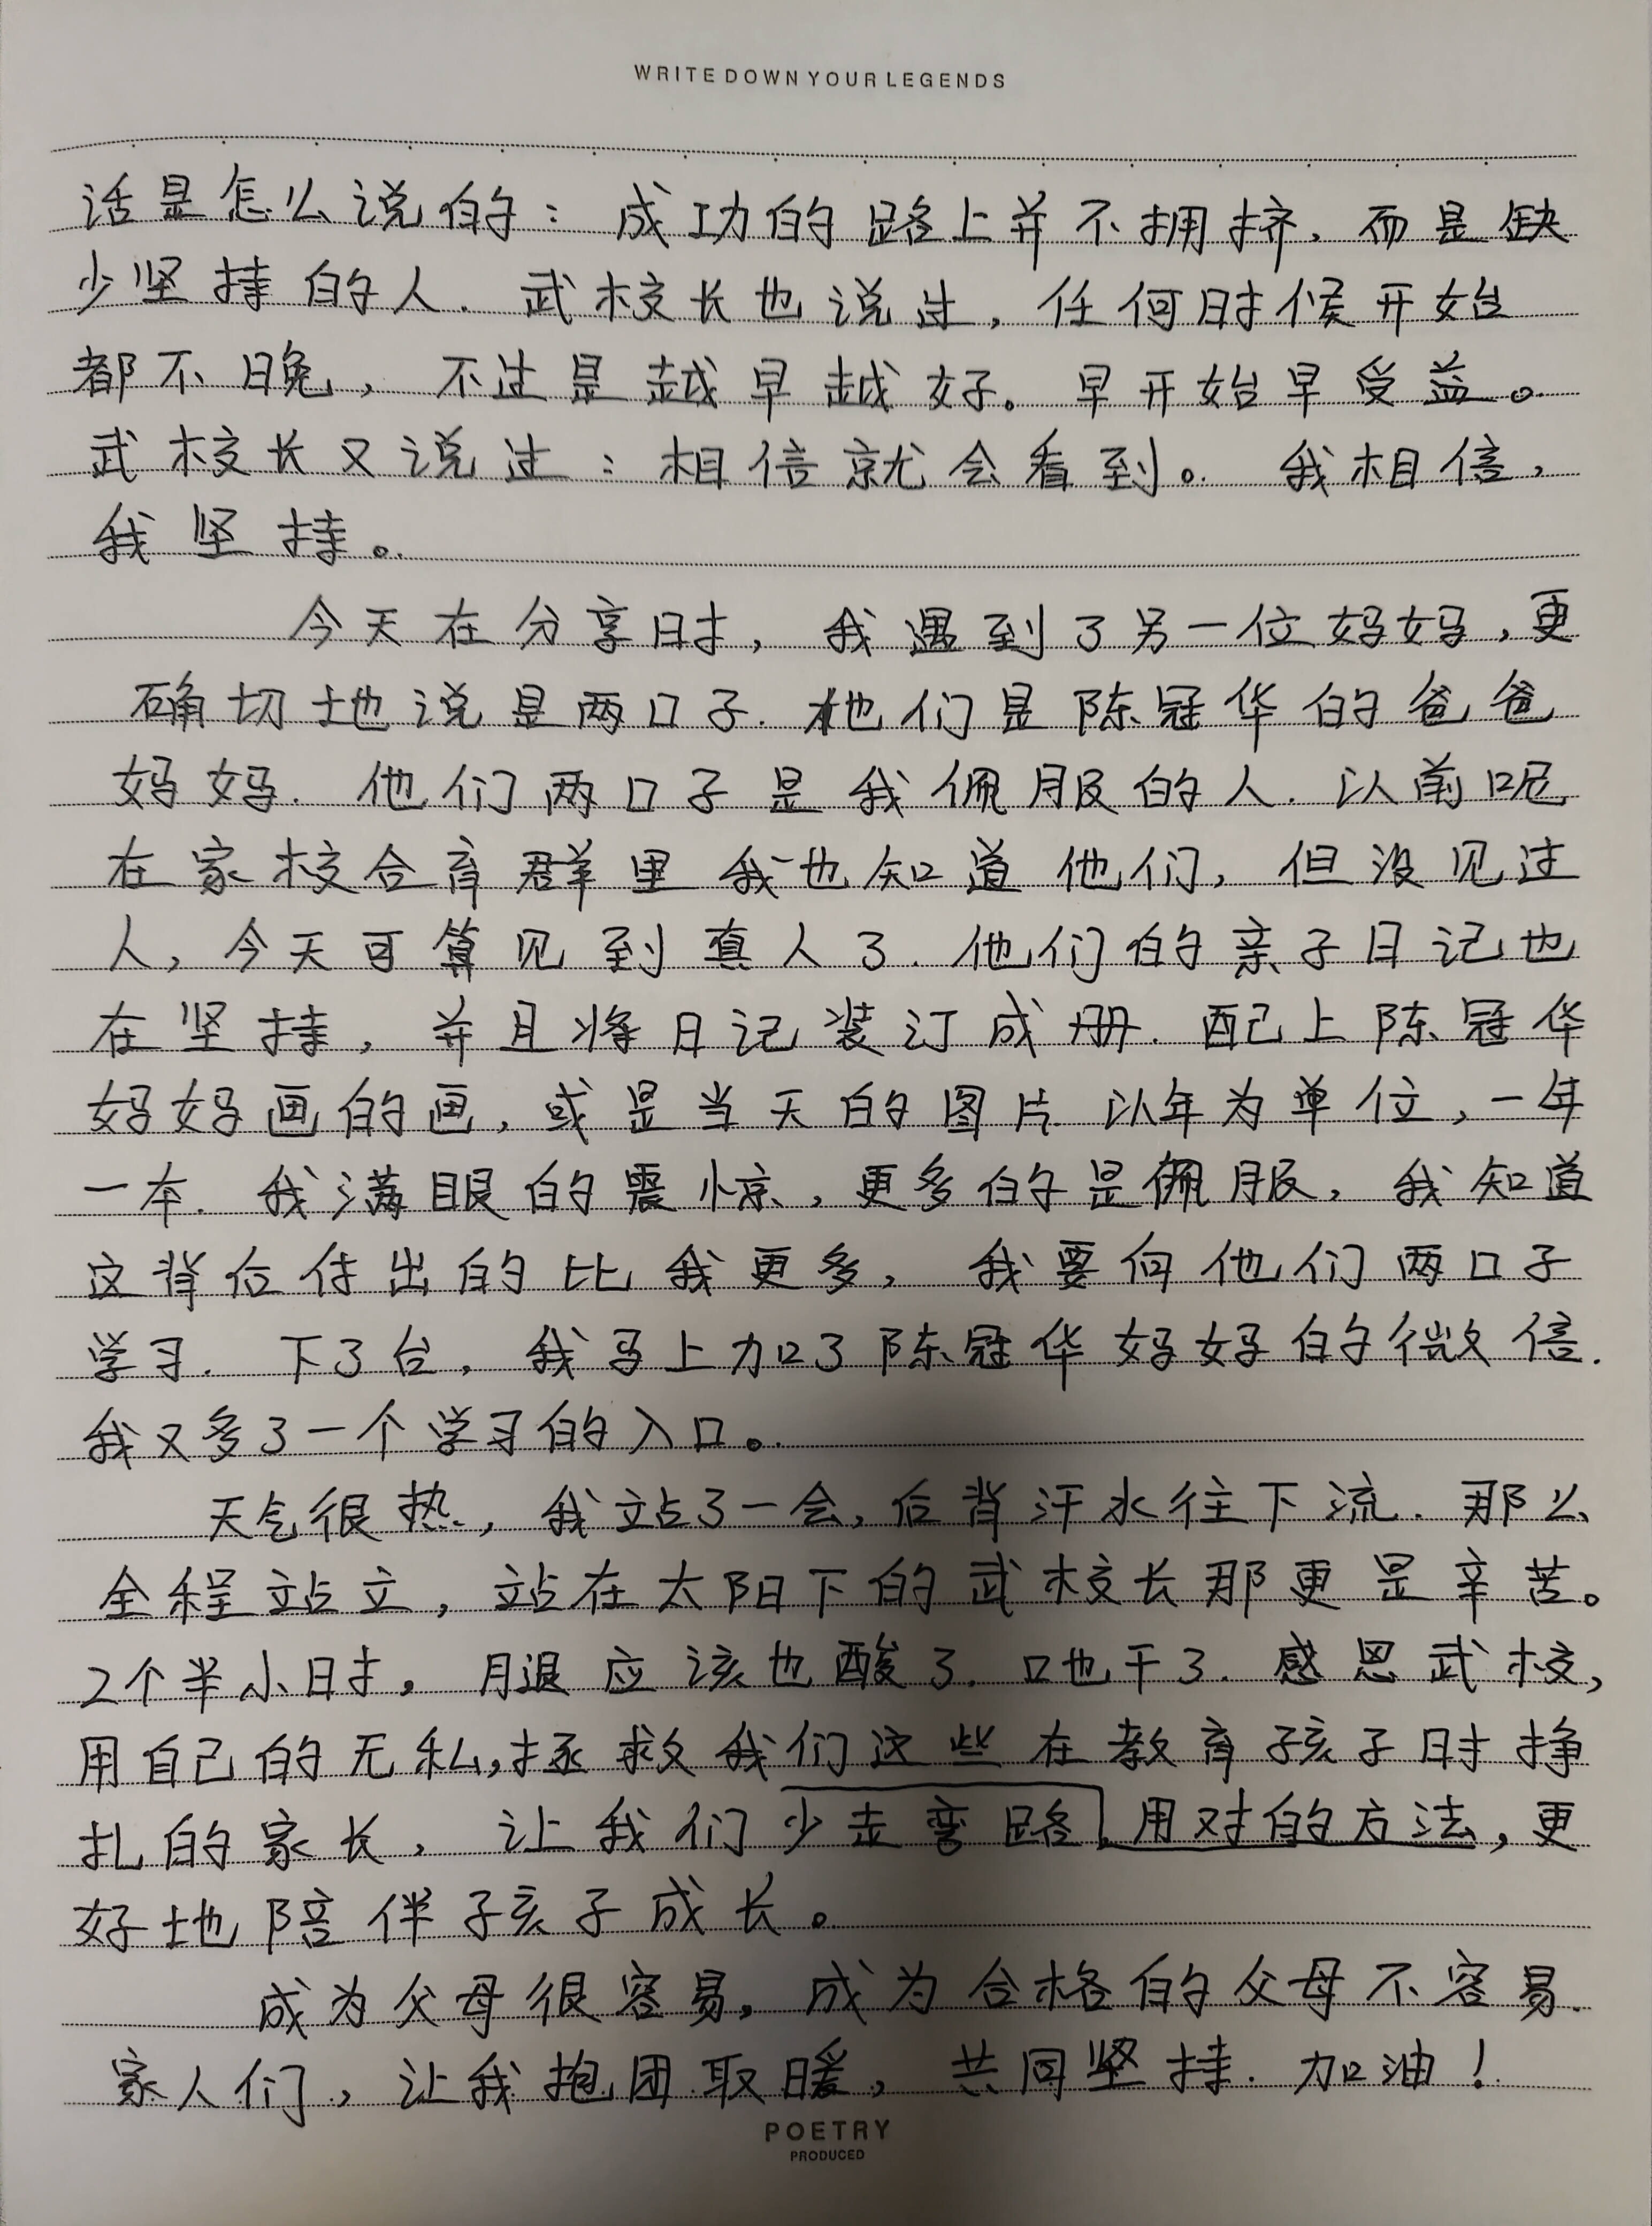 WRITE DOWN YOUR LEGENDS
话是怎么说的：成功的路上并不拥挤，而是缺
少坚持的人．武校长也说过，任何时候开始
都不晚，不过是越早越好。早开始早受益。
武校长又说过：相信就会看到。我相信，
我坚持。
今天在分享时，我遇到了另一位妈妈，更
确切地说是两口子．他们是陈冠华的爸爸
妈妈．他们两口子是我佩服的人．以前呢
在家校合育群里我也知道他们，但没见过
人，今天可算见到真人了．他们的亲子日记也
在坚持，并且将日记装订成册．配上陈冠华
妈妈画的画，或是当天的图片．以年为单位，一年
一本．我满眼的震惊，更多的是佩服，我知道
这背后付出的比我更多，我要向他们两口子
学习．下了台，我马上加了陈冠华妈妈的微信．
我又多了一个学习的入口。
天气很热，我站了一会，后背汗水往下流．那么
全程站立，站在太阳下的武校长那更是辛苦。
2个半小时，腿应该也酸了．口也干了．感恩武校，
用自己的无私，拯救我们这些在教育孩子时挣
扎的家长，让我们少走弯路，用对的方法，更
好地陪伴孩子成长。
成为父母很容易，成为合格的父母不容易．
家人们，让我抱团取暖，共同坚持．加油！
POETRY
PRODUCED